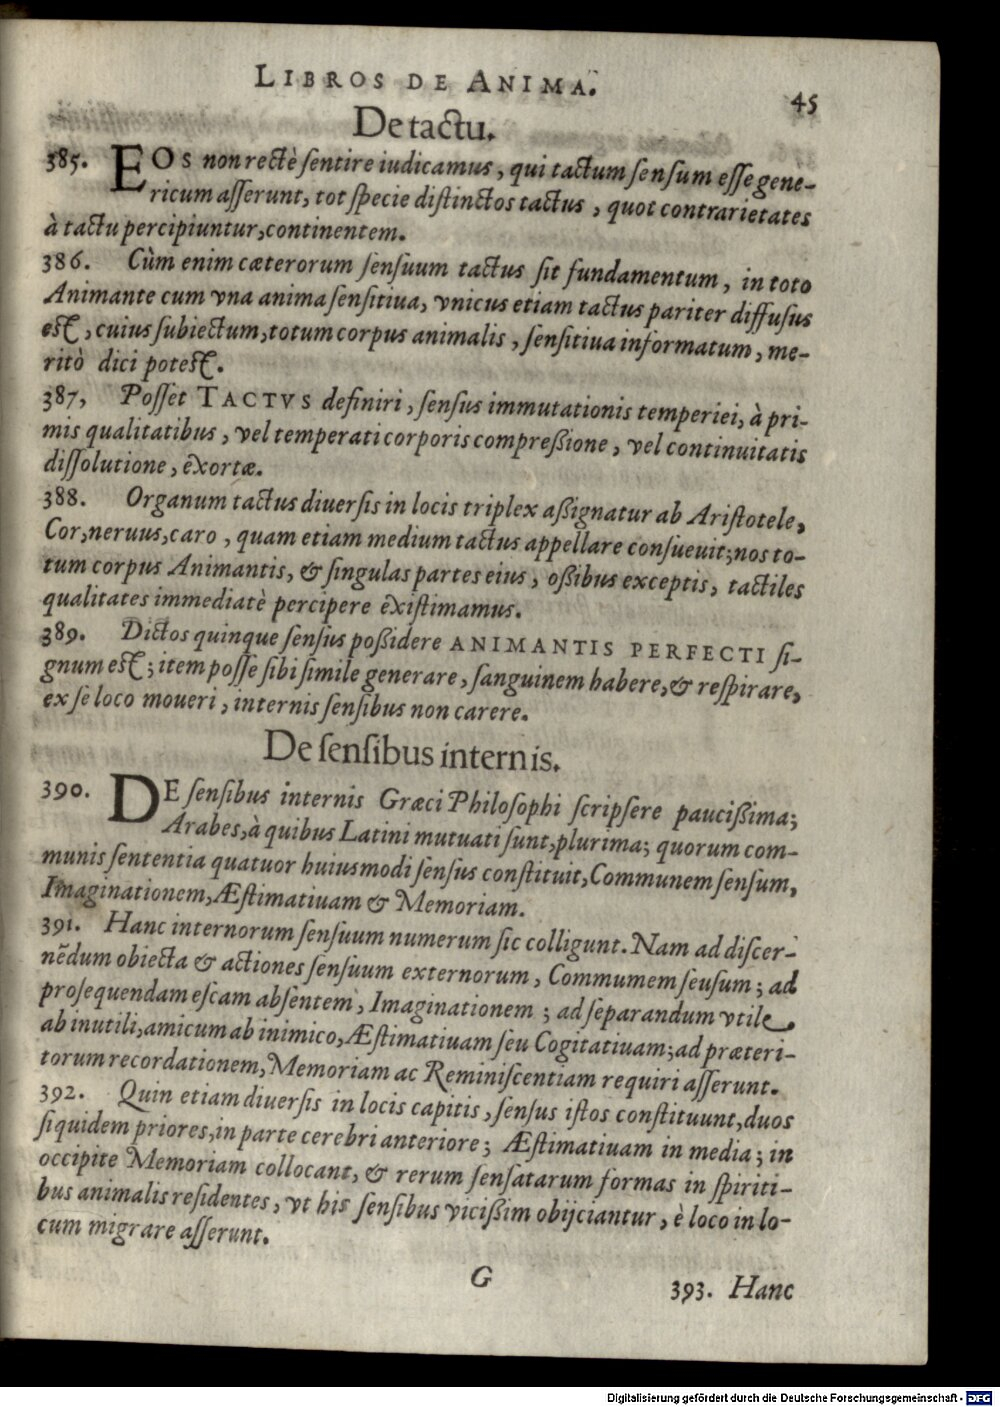 LIBROS DE ANIMA.
45
De tactu.
385. EOS non rectè sentire iudicamus, qui tactum sensum esse gene-
ricum asserunt, tot specie distinctos tactus, quot contrarietates
à tactu percipiuntur, continentem.
386. Cùm enim cæterorum sensuum tactus sit fundamentum, in toto
Animante cum vna anima sensitiua, vnicus etiam tactus pariter diffusus
est, cuius subiectum, totum corpus animalis, sensitiua informatum, me-
ritò dici potest.
387, Posset TACTVS definiri, sensus immutationis temperiei, à pri-
mis qualitatibus, vel temperati corporis compreßione, vel continuitatis
dissolutione, exortæ.
388. Organum tactus diuersis in locis triplex aßignatur ab Aristotele,
Cor, neruus, caro, quam etiam medium tactus appellare consueuit; nos to-
tum corpus Animantis, & singulas partes eius, oßibus exceptis, tactiles
qualitates immediatè percipere existimamus.
389. Dictos quinque sensus poßidere ANIMANTIS PERFECTI si-
gnum est; item posse sibi simile generare, sanguinem habere, & respirare,
ex se loco moueri, internis sensibus non carere.
De sensibus internis.
390. DE sensibus internis Græci Philosophi scripsere paucißima;
Arabes, à quibus Latini mutuati sunt, plurima; quorum com-
munis sententia quatuor huiusmodi sensus constituit, Communem sensum,
Imaginationem, Æstimatiuam & Memoriam.
391. Hanc internorum sensuum numerum sic colligunt. Nam ad discer-
nẽdum obiecta & actiones sensuum externorum, Commumem seusum; ad
prosequendam escam absentem, Imaginationem; ad separandum vtile
ab inutili, amicum ab inimico, Æstimatiuam seu Cogitatiuam; ad præteri-
torum recordationem, Memoriam ac Reminiscentiam requiri asserunt.
392. Quin etiam diuersis in locis capitis, sensus istos constituunt, duos
siquidem priores, in parte cerebri anteriore; Æstimatiuam in media; in
occipite Memoriam collocant, & rerum sensatarum formas in spiriti-
bus animalis residentes, vt his sensibus vicißim obijciantur, è loco in lo-
cum migrare asserunt.
G
393. Hanc
Digitalisierung gefördert durch die Deutsche Forschungsgemeinschaft - DFG